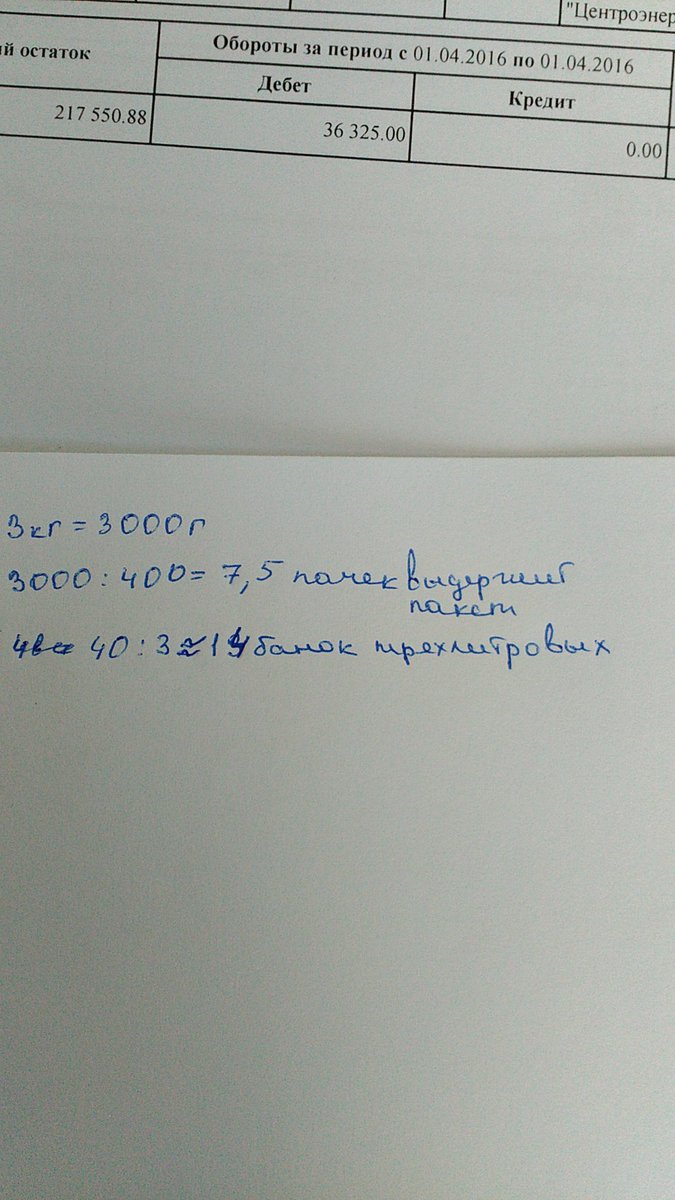 "Центроэнер
ый остаток
Обороты за период с 01.04.2016 по 01.04.2016
Дебет
Кредит
217 550.88
36 325.00
0.00
3кг = 3000г
3000 : 400 = 7,5 пачек выдержит
пакет
40 : 3 ≈ 14 банок трехлитровых